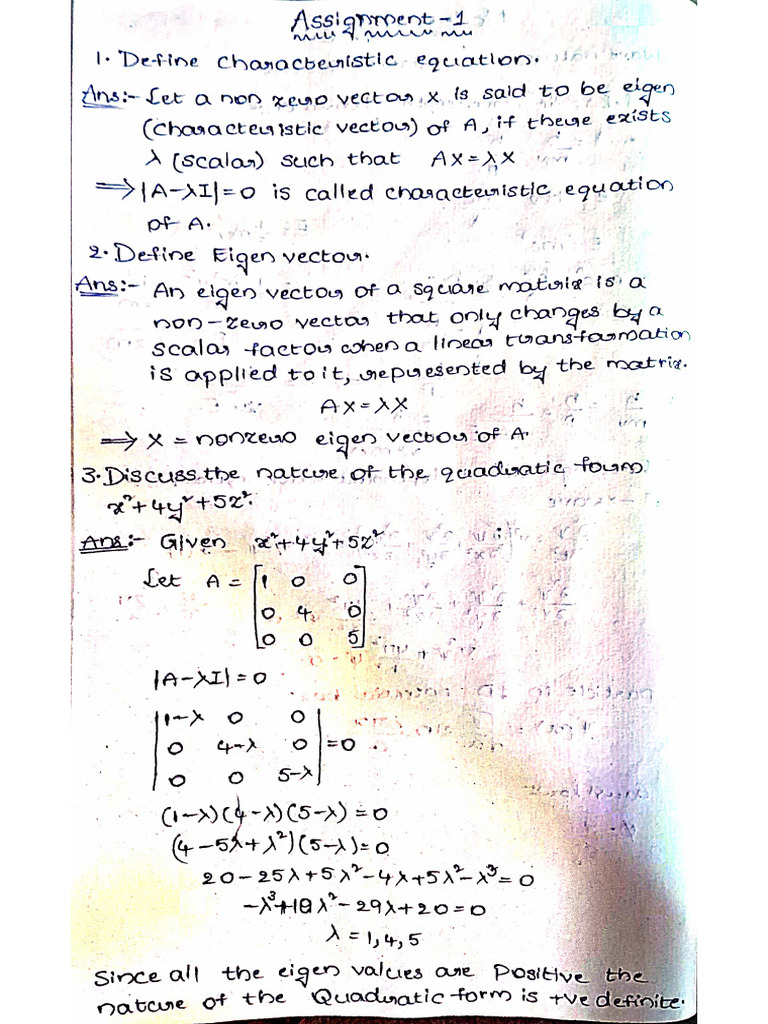 Assignment-1
1. Define characteristic equation.
Ans:- Let a non zero vector x is said to be eigen
(characteristic vector) of A, if there exists
λ (scalar) such that AX=λX
⟹|A-λI|=0 is called characteristic equation
of A.
2. Define Eigen vector.
Ans:- An eigen vector of a square matrix is a
non-zero vector that only changes by a
scalar factor when a linear transformation
is applied to it, represented by the matrix.
AX=λX
⟹ X = nonzero eigen vector of A.
3. Discuss the nature of the quadratic form
x²+4y²+5z².
Ans:- Given x²+4y²+5z²
Let A = [1 0 0
0 4 0
0 0 5]
|A-λI|=0
|1-λ 0 0
0 4-λ 0|=0
0 0 5-λ|
(1-λ)(4-λ)(5-λ)=0
(4-5λ+λ²)(5-λ)=0
20-25λ+5λ²-4λ+5λ²-λ³=0
-λ³+10λ²-29λ+20=0
λ = 1,4,5
Since all the eigen values are Positive the
nature of the Quadratic form is +ve definite.